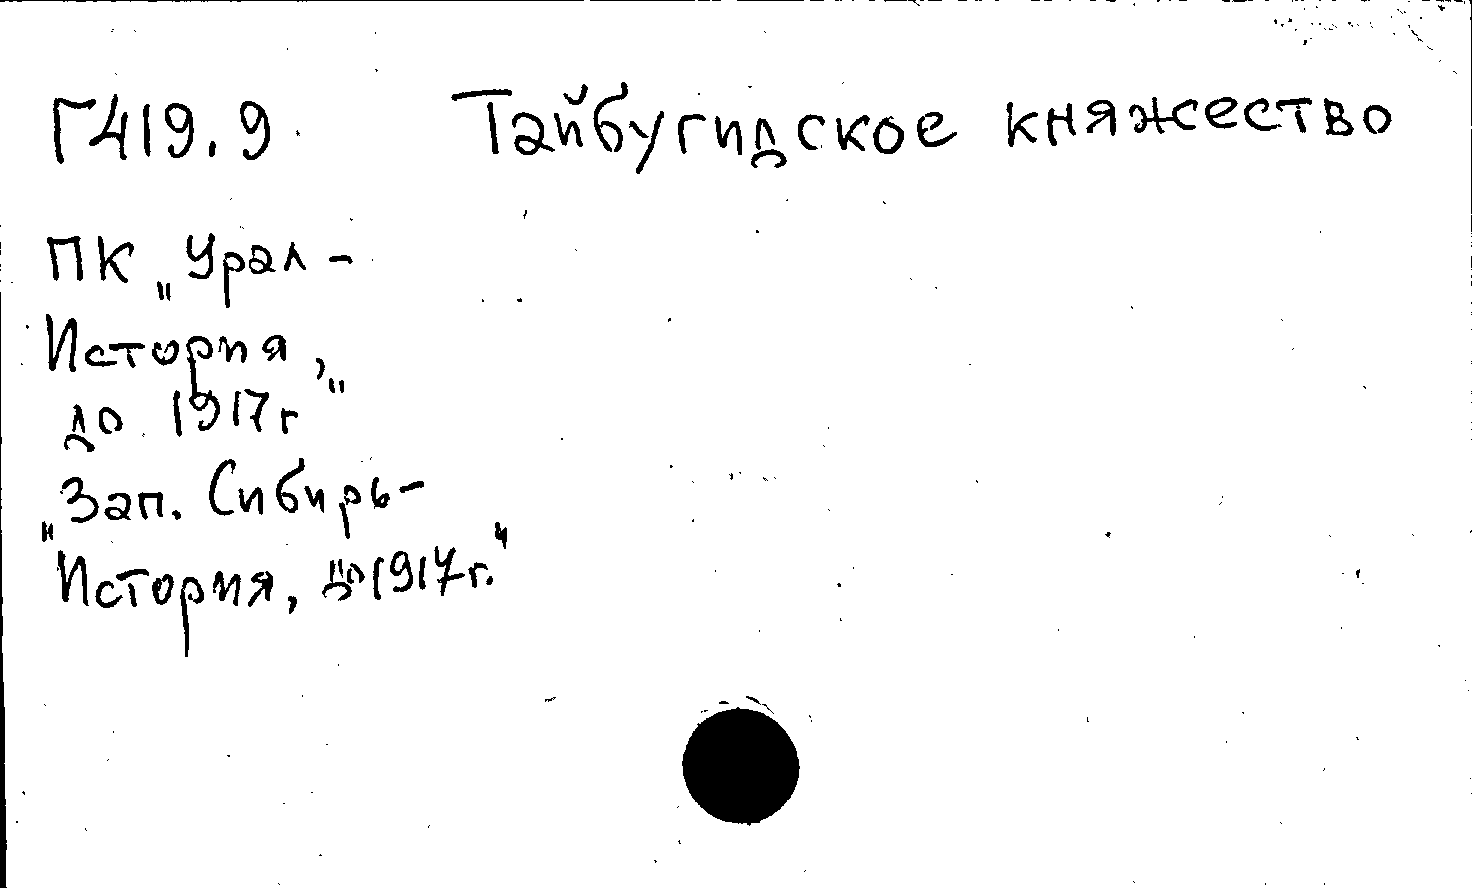 Г419.9 Тайбугидское княжество
ПК „Урал -
История,
до 1917г"
„Зап. Сибирь-
История, до 1917г."